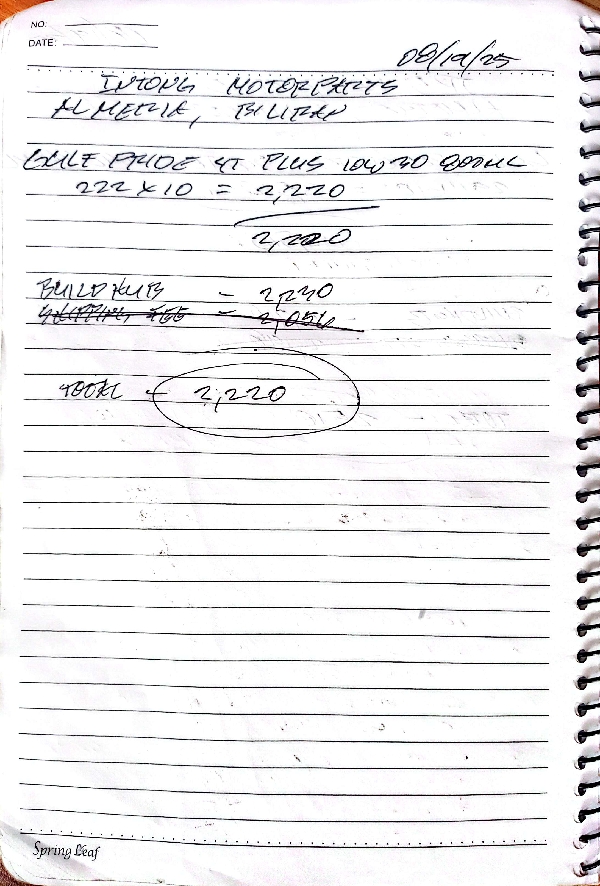 NO.
DATE:
08/19/25
INTONG MOTORPARTS
ALMERIA, BILIRAN
GULF PRIDE 4T PLUS 10W30 800ML
222 X 10 = 2,220
2,220
BUILD HUB - 2,230
SHIPPING FEE - 2,056
TOTAL - 2,220
Spring Leaf